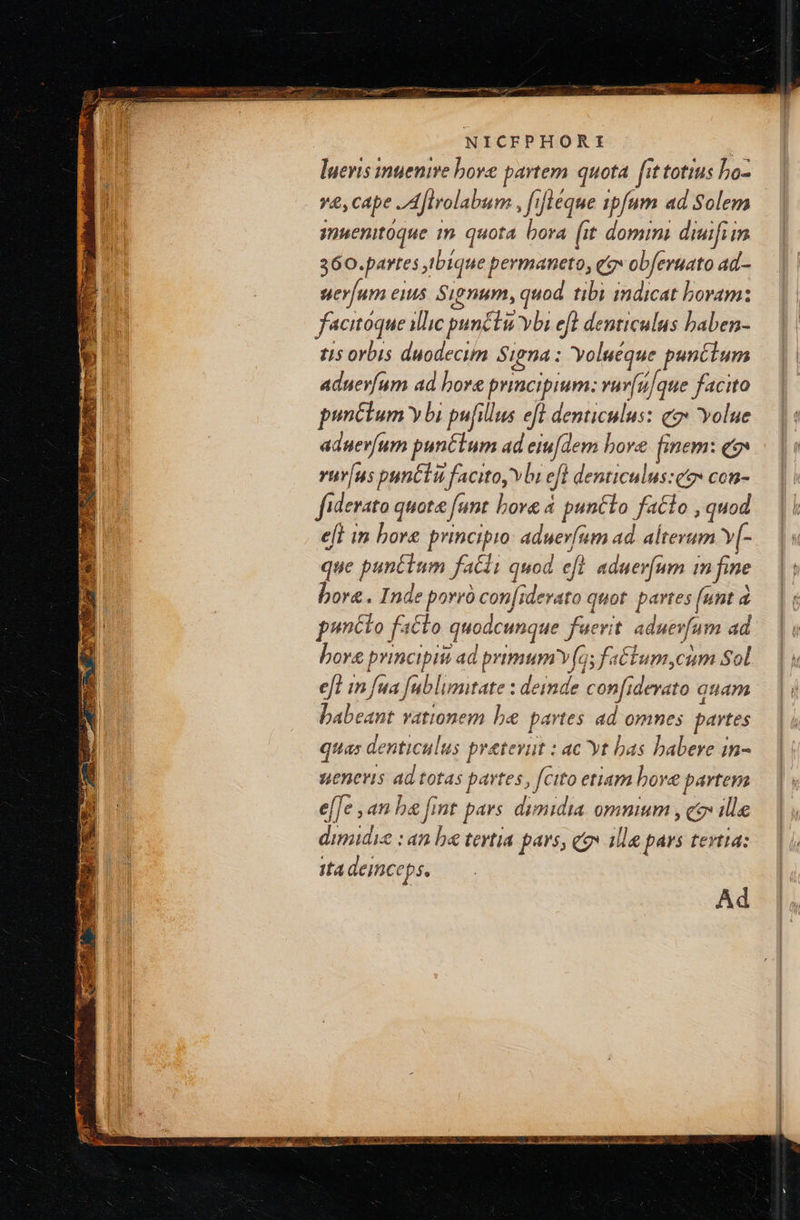 NICEPHORI
lueris inuenire horæ partem quota sit totius ho-
ræ, cape Astrolabum, sistéque ipsum ad Solem
inuenitóque in quota hora sit domini diuisiin
360.partes,ibíque permaneto, & obseruato ad-
uersum eius Signum, quod tibi indicat horam:
facitóque illic punctũ vbi est denticulus haben-
tis orbis duodecim Signa: voluéque punctum
aduersum ad horæ principium: rursũsque facito
punctum vbi pusillus est denticulus: & volue
aduersum punctum ad eiusdem horæ finem: &
rursus punctũ facito, vbi est denticulus: & con-
siderato quotæ sunt horæ à puncto facto, quod
est in horæ principio aduersum ad alterum vs-
que punctum facti quod est aduersum in fine
horæ. Inde porrò considerato quot partes sunt à
puncto facto quodcunque fuerit aduersum ad
horæ principiũ ad primum vsq; factum, cùm Sol
est in sua sublimitate: deinde considerato quam
habeant rationem hæ partes ad omnes partes
quas denticulus præteriit: ac vt has habere in-
ueneris ad totas partes, scito etiam horæ partem
esse, an hæ sint pars dimidia omnium, & illæ
dimidiæ: an hæ tertia pars, & illæ pars tertia:
ita deinceps.
Ad